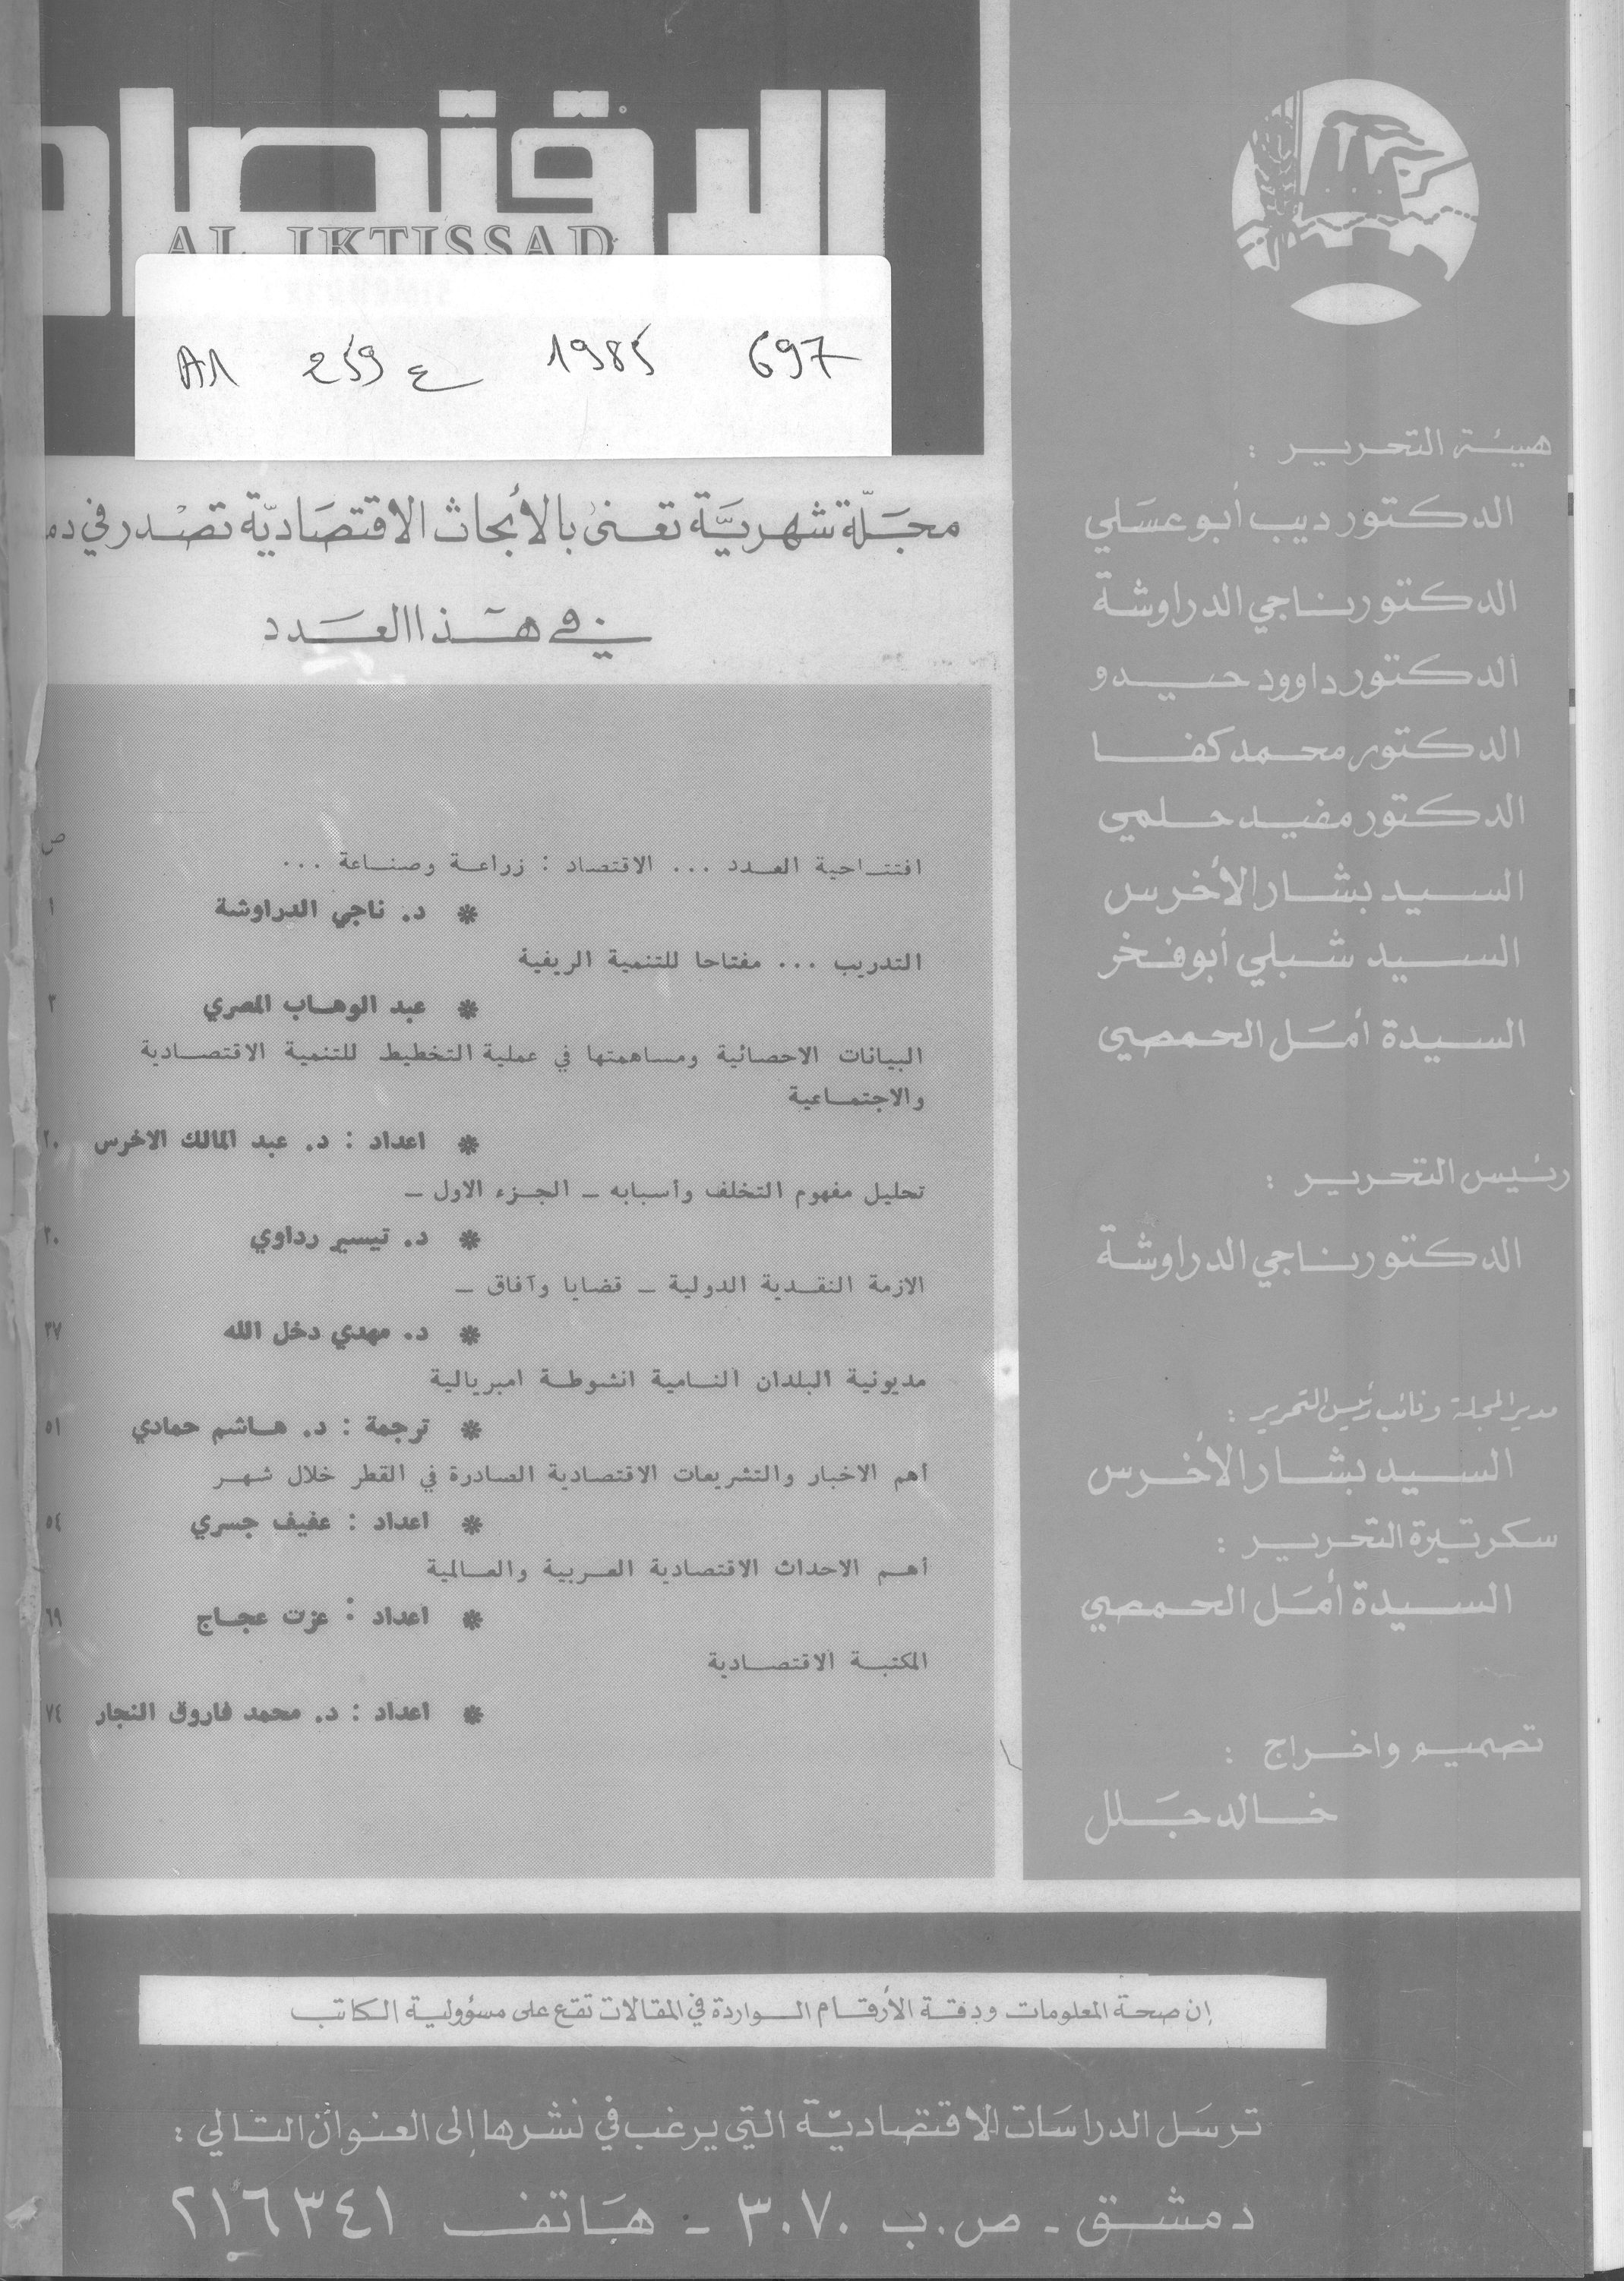 الاقتصاد
AL IKTISSAD
A1 259 ع 1985 697
مجلة شهرية تعنى بالأبحاث الاقتصادية تصدر في
في هذا العدد
ص
افتتاحية العدد ... الاقتصاد : زراعة وصناعة ...
* د. ناجي الدراوشة ١
التدريب ... مفتاحا للتنمية الريفية
* عبد الوهاب المصري ٣
البيانات الاحصائية ومساهمتها في عملية التخطيط للتنمية الاقتصادية
والاجتماعية
* اعداد : د. عبد المالك الاخرس ٢٠
تحليل مفهوم التخلف وأسبابه ــ الجزء الاول ــ
* د. تيسير رداوي ٣٠
الازمة النقدية الدولية ــ قضايا وآفاق ــ
* د. مهدي دخل الله ٣٧
مديونية البلدان النامية انشوطة امبريالية
* ترجمة : د. هاشم حمادي ٥١
أهم الاخبار والتشريعات الاقتصادية الصادرة في القطر خلال شهر
* اعداد : عفيف جسري ٥٤
أهم الاحداث الاقتصادية العربية والعالمية
* اعداد : عزت عجاج ٦٩
المكتبة الاقتصادية
* اعداد : د. محمد فاروق النجار ٧٤
هيئة التحرير :
الدكتور ديب أبو عسلي
الدكتور ناجي الدراوشة
الدكتور داوود حيدو
الدكتور محمد كفا
الدكتور مفيد حلمي
السيد بشار الأخرس
السيد شبلي أبو فخر
السيدة أمل الحمصي
رئيس التحرير :
الدكتور ناجي الدراوشة
مدير المجلة ونائب رئيس التحرير :
السيد بشار الأخرس
سكرتيرة التحرير :
السيدة أمل الحمصي
تصميم واخراج :
خالد جلل
إن صحة المعلومات ودقة الأرقام الواردة في المقالات تقع على مسؤولية الكاتب
ترسل الدراسات الاقتصادية التي يرغب في نشرها إلى العنوان التالي :
دمشق ـ ص.ب ٣٠٧٠ ـ هاتف ٢١٦٣٤١